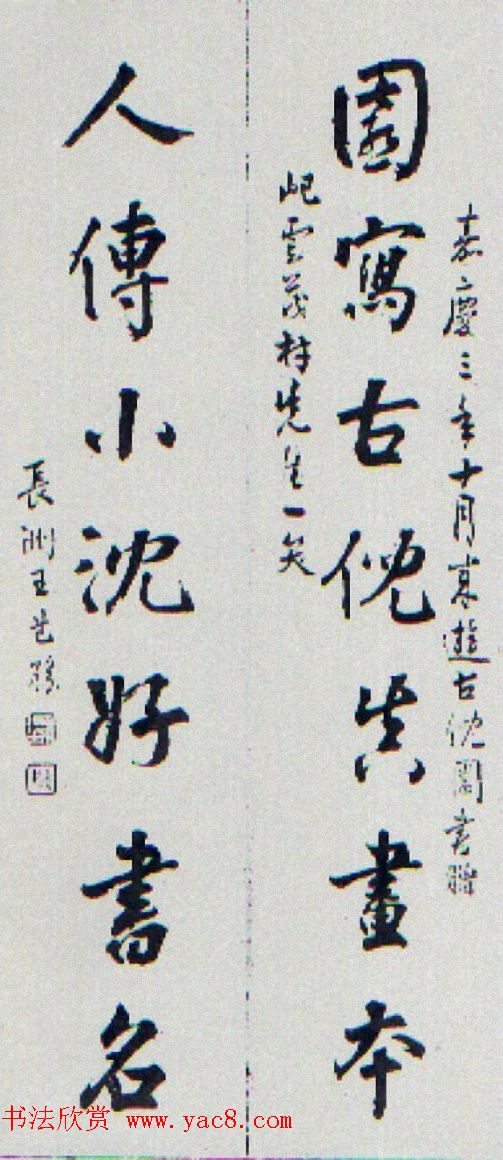 嘉慶三年十月來遊古倪園書贈
園寫古倪真畫本
屺雲茂材先生一笑
人傳小沈好書名
長洲王芑孫
书法欣赏 www.yac8.com